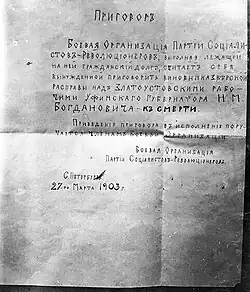 ПРИГОВОРЪ
БОЕВАЯ ОРГАНИЗАЦІЯ ПАРТІИ СОЦІАЛИ-
СТОВЪ-РЕВОЛЮЦІОНЕРОВЪ, ВЫПОЛНЯЯ ЛЕЖАЩІЙ
НА НЕЙ ГРАЖДАНСКІЙ ДОЛГЪ, СЧИТАЕТЪ СЕБЯ
ВЫНУЖДЕННОЙ ПРИГОВОРИТЬ ВИНОВНИКА ЗВѢРСКОЙ
РАСПРАВЫ НАДЪ ЗЛАТОУСТОВСКИМИ РАБО-
ЧИМИ УФИМСКАГО ГУБЕРНАТОРА Н. М.
БОГДАНОВИЧА - КЪ СМЕРТИ.
ПРИВЕДЕНІЕ ПРИГОВОРА ВЪ ИСПОЛНЕНІЕ ПОРУ-
ЧАЕТСЯ ЧЛЕНАМЪ БОЕВОЙ ОРГАНИЗАЦІИ.
БОЕВАЯ ОРГАНИЗАЦІЯ
ПАРТІИ СОЦІАЛИСТОВЪ-РЕВОЛЮЦІОНЕРОВЪ.
С. ПЕТЕРБУРГЪ
27-го МАРТА 1903 г.